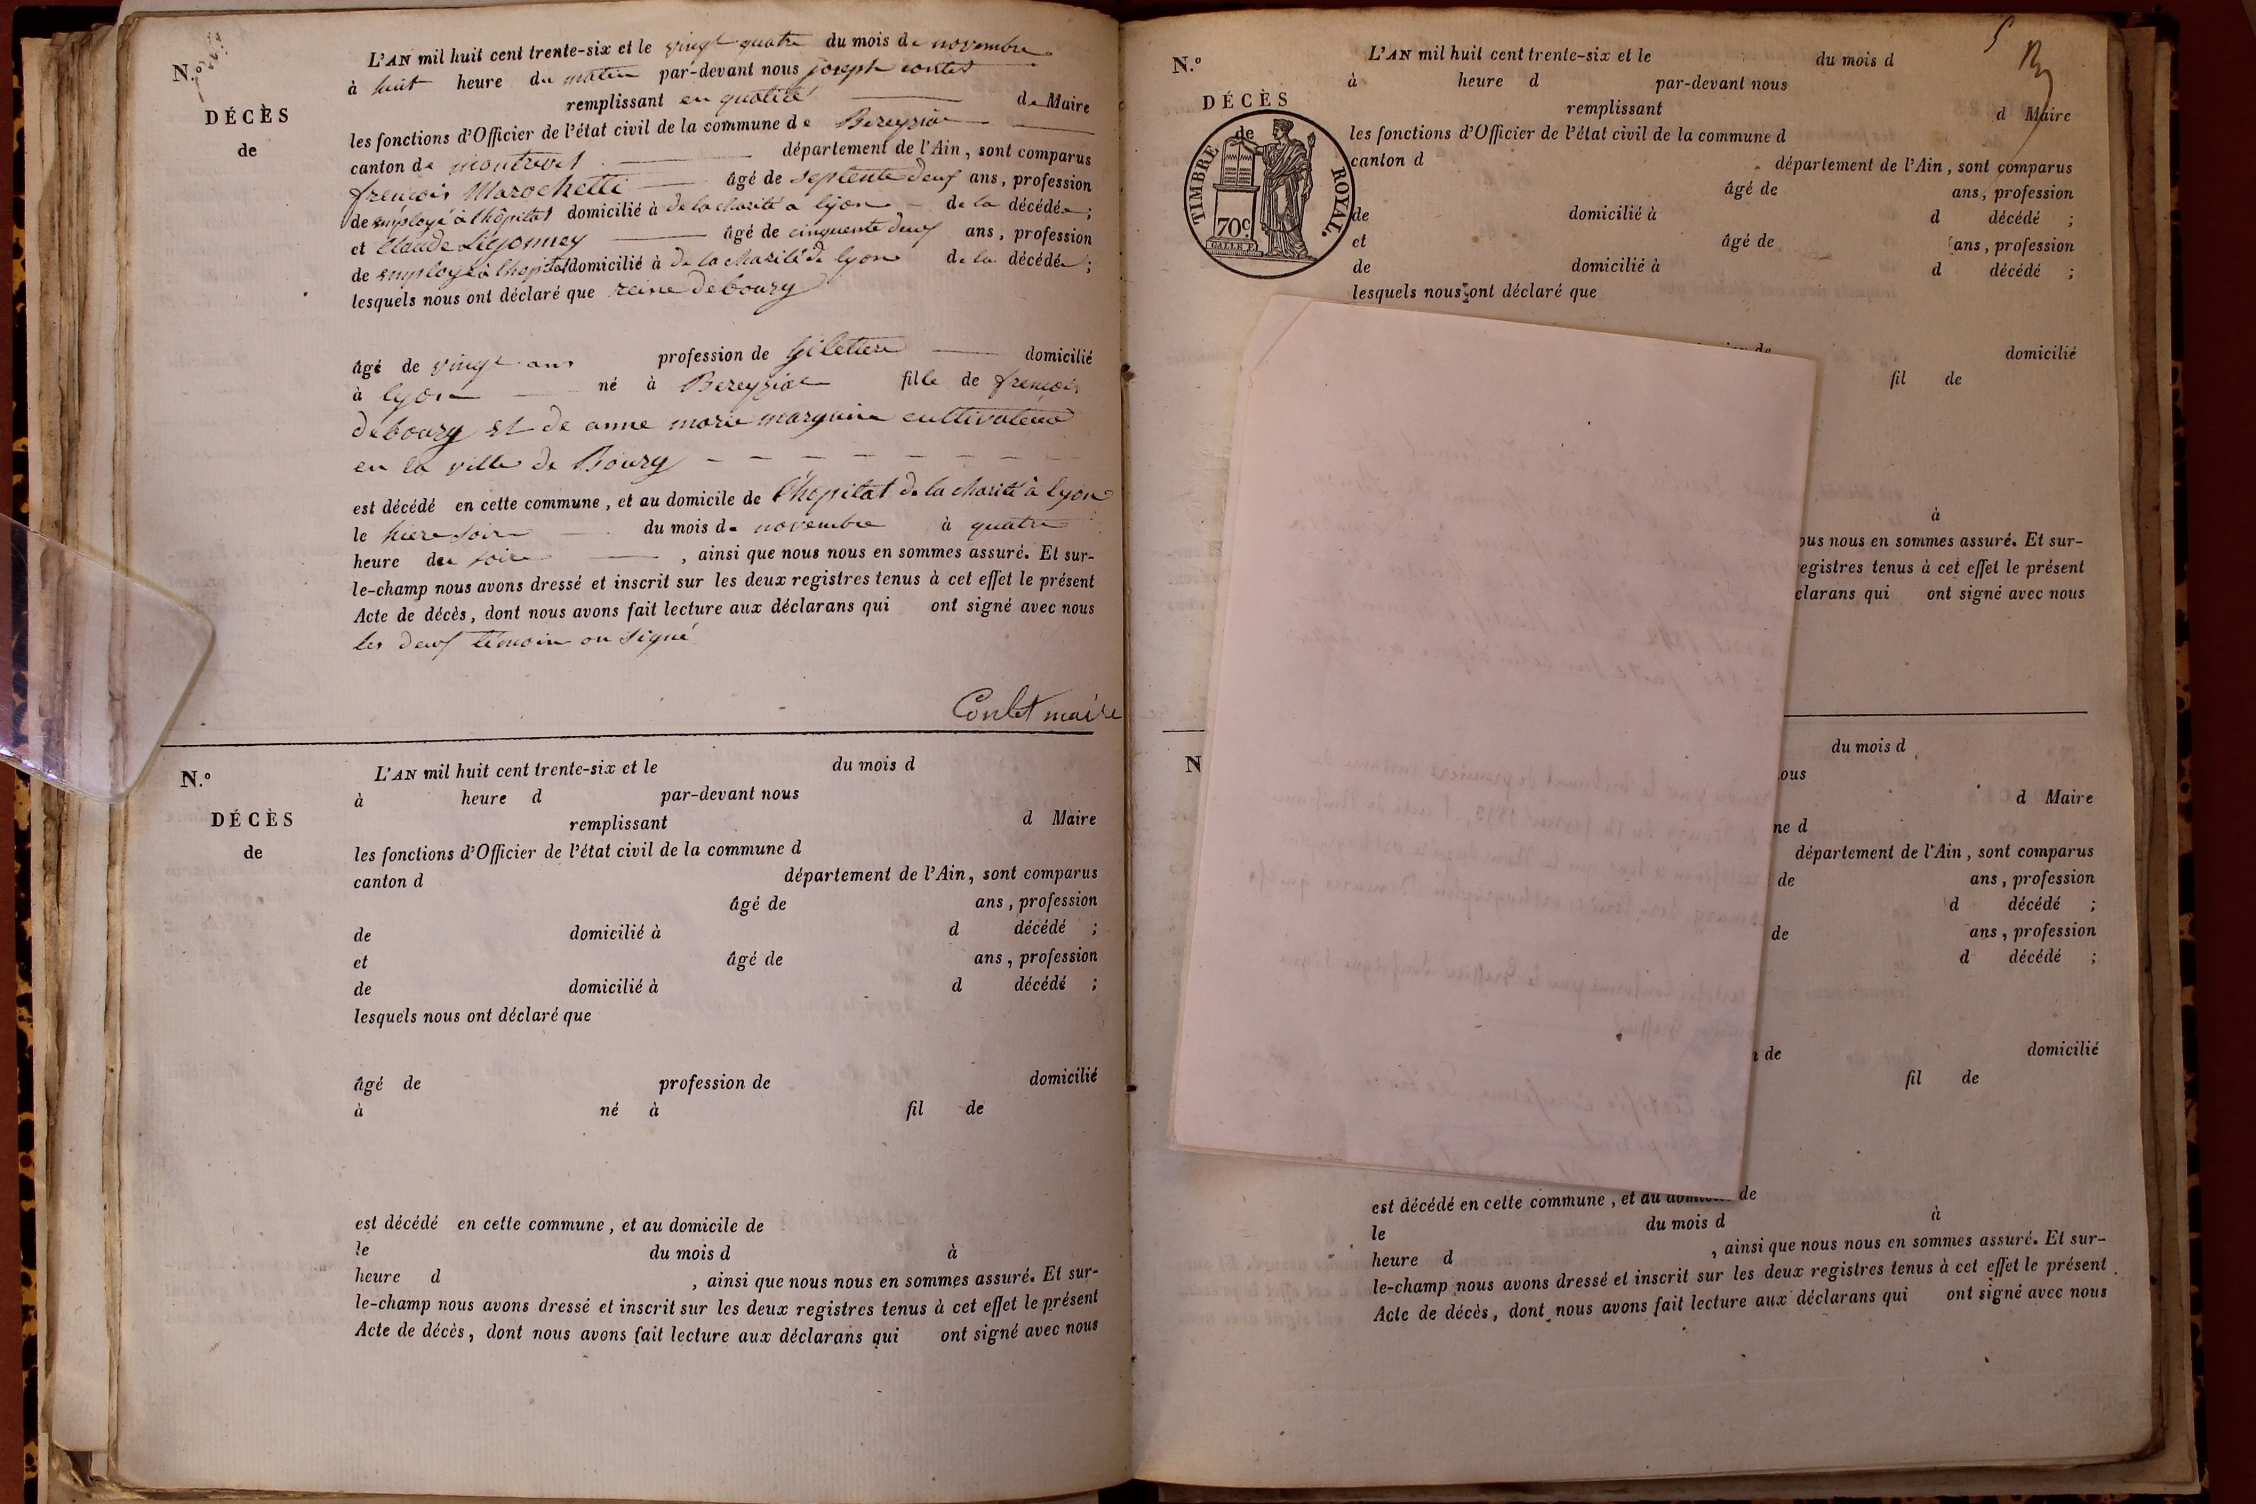 N.º
DÉCÈS
de
L'AN mil huit cent trente-six et le vingt quatre du mois de novembre
à huit heure du matin par-devant nous joseph contet
remplissant en qualité de Maire
les fonctions d'Officier de l'état civil de la commune de Bereyziat
canton de montrevel département de l'Ain, sont comparus
françois Marochetti âgé de septente deuf ans, profession
de employé à l'hôpital domicilié à de la charité à lyon de la décédée;
et Claude Ligonney âgé de cinquente deuf ans, profession
de employé à l'hopital domicilié à de la charité de lyon de la décédée;
lesquels nous ont déclaré que reine debourg
âgé de vingt ans profession de giletiere domicilié
à lyon né à Bereyziat fille de françois
debourg et de anne marie marguin cultivateur
en la ville de Bourg
est décédé en cette commune, et au domicile de l'hopital de la charité à lyon
le hiere soir du mois de novembre à quatre
heure du soire, ainsi que nous nous en sommes assuré. Et sur-
le-champ nous avons dressé et inscrit sur les deux registres tenus à cet effet le présent
Acte de décès, dont nous avons fait lecture aux déclarans qui ont signé avec nous
les deuf témoin on signé
Contet maire
N.º
DÉCÈS
de
L'AN mil huit cent trente-six et le du mois d
à heure d par-devant nous
remplissant d Maire
les fonctions d'Officier de l'état civil de la commune d
canton d département de l'Ain, sont comparus
âgé de ans, profession
de domicilié à d décédé ;
et âgé de ans, profession
de domicilié à d décédé ;
lesquels nous ont déclaré que
âgé de profession de domicilié
à né à fil de
est décédé en cette commune, et au domicile de
le du mois d à
heure d , ainsi que nous nous en sommes assuré. Et sur-
le-champ nous avons dressé et inscrit sur les deux registres tenus à cet effet le présent
Acte de décès, dont nous avons fait lecture aux déclarans qui ont signé avec nous
5
N.º
DÉCÈS
de
TIMBRE ROYAL.
70c.
L'AN mil huit cent trente-six et le du mois d
à heure d par-devant nous
remplissant d Maire
les fonctions d'Officier de l'état civil de la commune d
canton d département de l'Ain, sont comparus
âgé de ans, profession
de domicilié à d décédé ;
et âgé de ans, profession
de domicilié à d décédé ;
lesquels nous ont déclaré que
de domicilié
fil de
à
ous nous en sommes assuré. Et sur-
egistres tenus à cet effet le présent
clarans qui ont signé avec nous
N
du mois d
ous
d Maire
ne d
département de l'Ain, sont comparus
de ans, profession
d décédé ;
de ans, profession
d décédé ;
de domicilié
fil de
est décédé en cette commune, et au domicile de
le du mois d à
heure d , ainsi que nous nous en sommes assuré. Et sur-
le-champ nous avons dressé et inscrit sur les deux registres tenus à cet effet le présent
Acte de décès, dont nous avons fait lecture aux déclarans qui ont signé avec nous